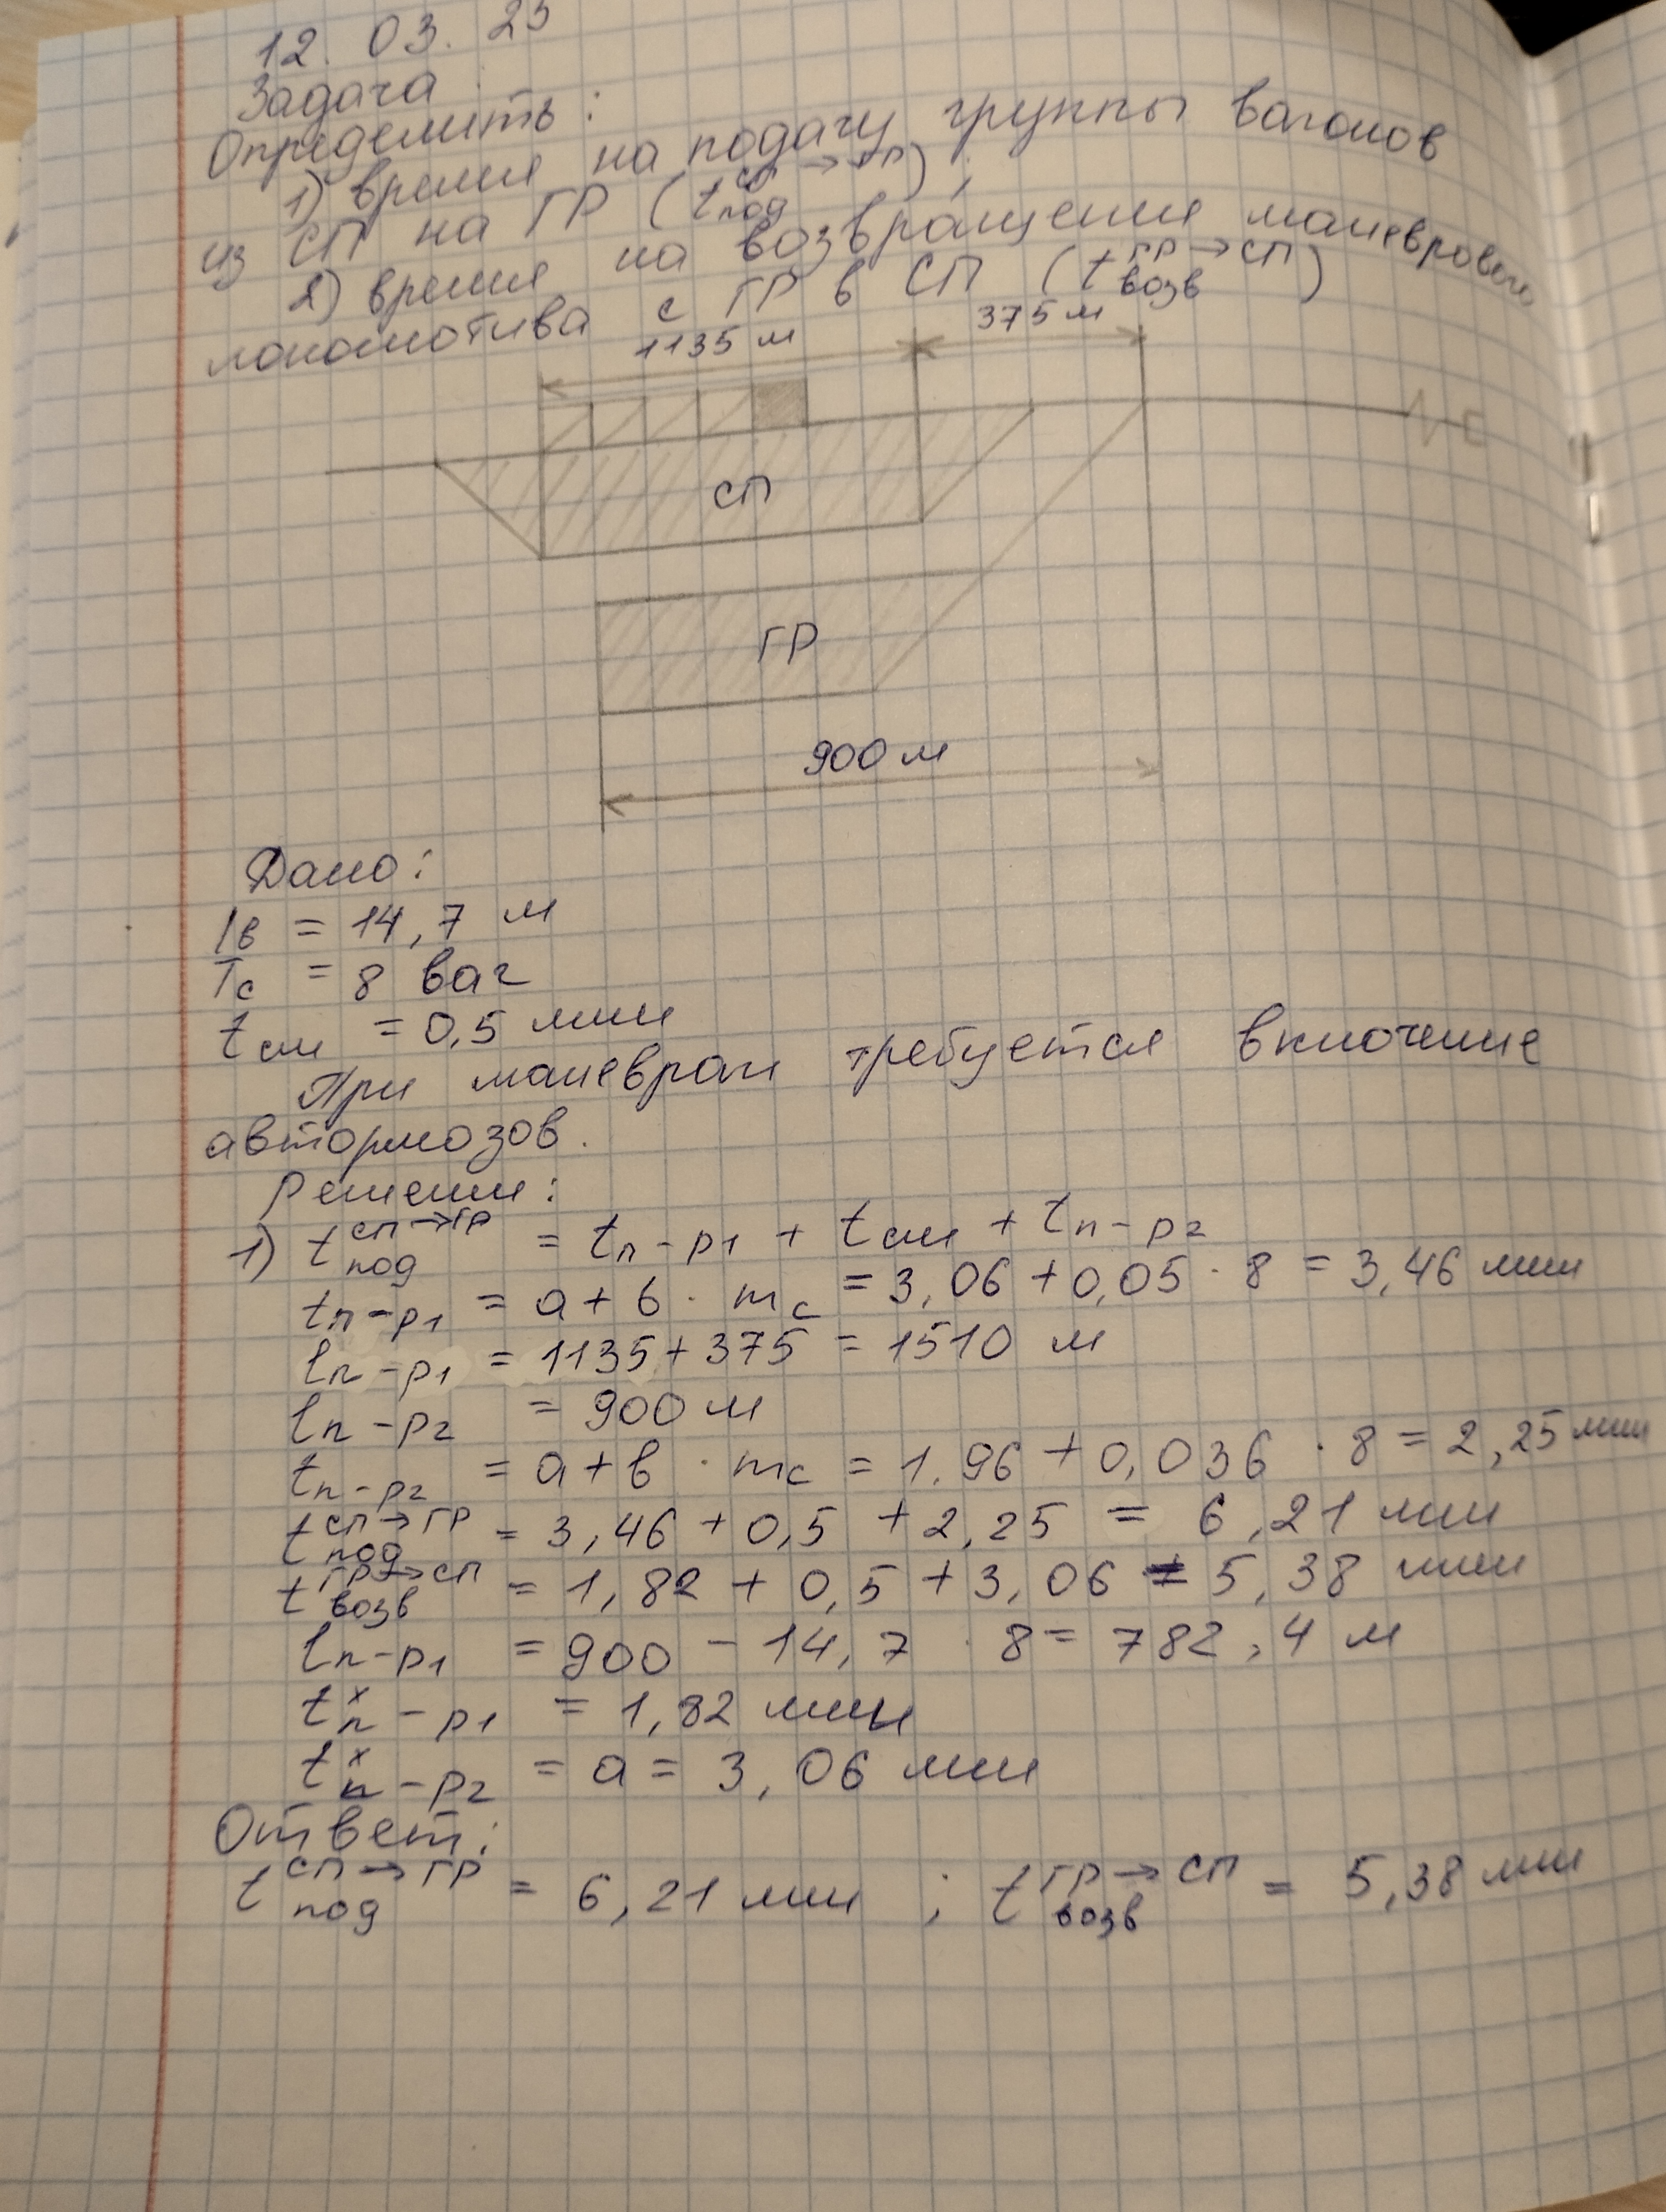 12. 03. 25
Задача
Определить:
1) время на подачу группы вагонов
из СП на ГР (t под СП → ГР);
2) время на возвращение маневрового
локомотива с ГР в СП (t возв ГР → СП)
1135 м 375 м
СП
ГР
900 м
Дано:
lв = 14,7 м
mс = 8 ваг
tсм = 0,5 мин
При маневрах требуется включение
автормозов.
Решение:
1) t под СП→ГР = tп-р1 + tсм + tп-р2
tп-р1 = а + б · mс = 3,06 + 0,05 · 8 = 3,46 мин
lп-р1 = 1135 + 375 = 1510 м
lп-р2 = 900 м
tп-р2 = а + в · mс = 1.96 + 0,036 · 8 = 2,25 мин
t под СП→ГР = 3,46 + 0,5 + 2,25 = 6,21 мин
t возв ГР→СП = 1,82 + 0,5 + 3,06 = 5,38 мин
lп-р1 = 900 - 14,7 · 8 = 782,4 м
tˣп-р1 = 1,82 мин
tˣп-р2 = а = 3,06 мин
Ответ:
t под СП→ГР = 6,21 мин ; t возв ГР→СП = 5,38 мин